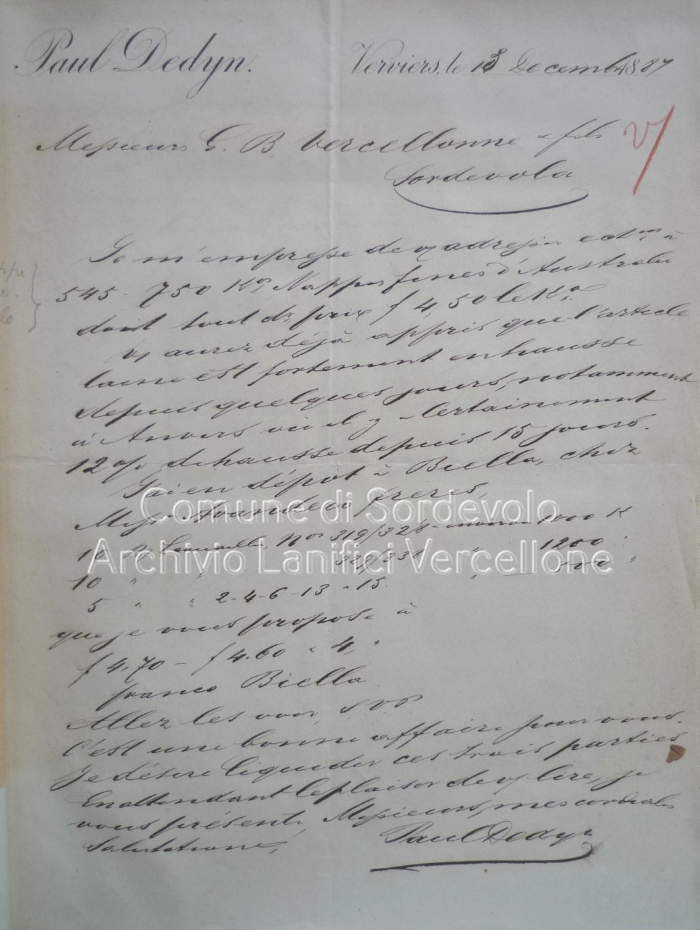 Paul Dedyn.
Verviers, le 18 Decemb. 1887
Messieurs G. B. Vercellonne & fils
Sordevola
Je m'empresse de vs adresser
545 - 750 Kos Nappes fines d'Australie
dont tout ds prix f 4,50 le Ko.
Vs aurez déjà appris que l'article
laine est fortement en hausse
depuis quelques jours, notamment
à Anvers où il y a certainement
12% de hausse depuis 15 jours.
J'ai en dépôt à Biella, chez
Messrs frères,
Nos 319/328 1000 K
10 " " 1200 "
5 " " 2-4-6-13-15 "
que je vous propose à
f 4.70 - f 4.60 " 4, "
franco Biella.
Allez les voir, s.v.p.
C'est une bonne affaire pour vous.
Je désire liquider ces trois parties
En attendant le plaisir de vs lire, je
vous présente, Messieurs, mes cordiales
salutations,
Paul Dedyn
Comune di Sordevolo
Archivio Lanifici Vercellone